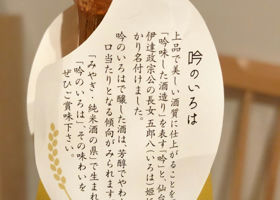 吟のいろは
上品で美しい酒質に仕上がることを
「吟味した酒造り」を表す「吟」と、仙台
伊達政宗公の長女 五郎八(いろは)姫
かり名付けました。
吟のいろはで醸した酒は、芳醇でやわ
口当たりとなる傾向がみられます
「みやぎ・純米酒の県」で生まれ
「吟のいろは」、その味わいを
ぜひご賞味下さい。